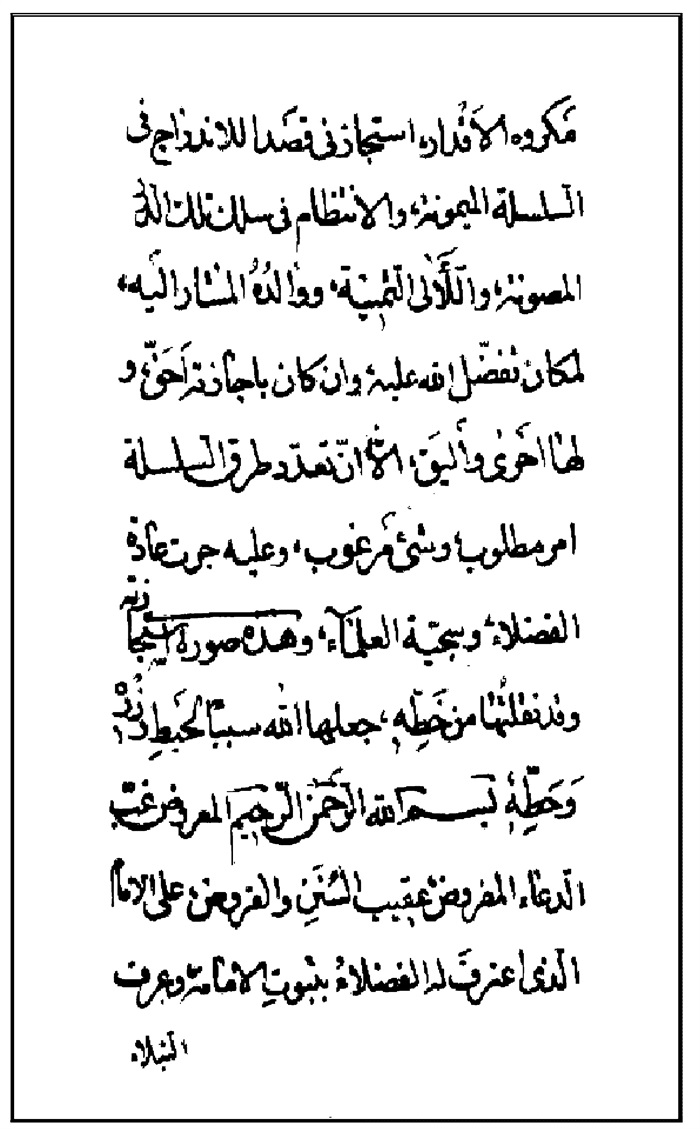 مكروه الأقدار، استجازني قصدا للاندراج في
السلسلة الميمونة، والانتظام في سلك تلك الدرر
المصونة، واللآلى الثمينة، ووالدُهُ المشار اليه،
لمكان تفضّل الله عليه، وان كان باجازته أحَقّ، و
لها احرى وأليَق، الّا انّ تعدّد طرق السلسلة
امر مطلوب، وشئ مرغوب، وعليه جرت عادة
الفضلاء، وسجيّة العلماء، وهذه صورة استجازته
وقد نقلتُها من خَطِّهِ، جعلها الله سببًا لحَطِ وِزْرِ
وَحَطِّهِ بسم الله الرَّحمَن الرَّحِيم المعروض غِبَّ
الدعاء المفروض عقيب السُّنَنِ والفروض، على الامام
الّذي اعترفَ له الفضلاءُ بثبوتِ الامامة وعرف
النبلاء